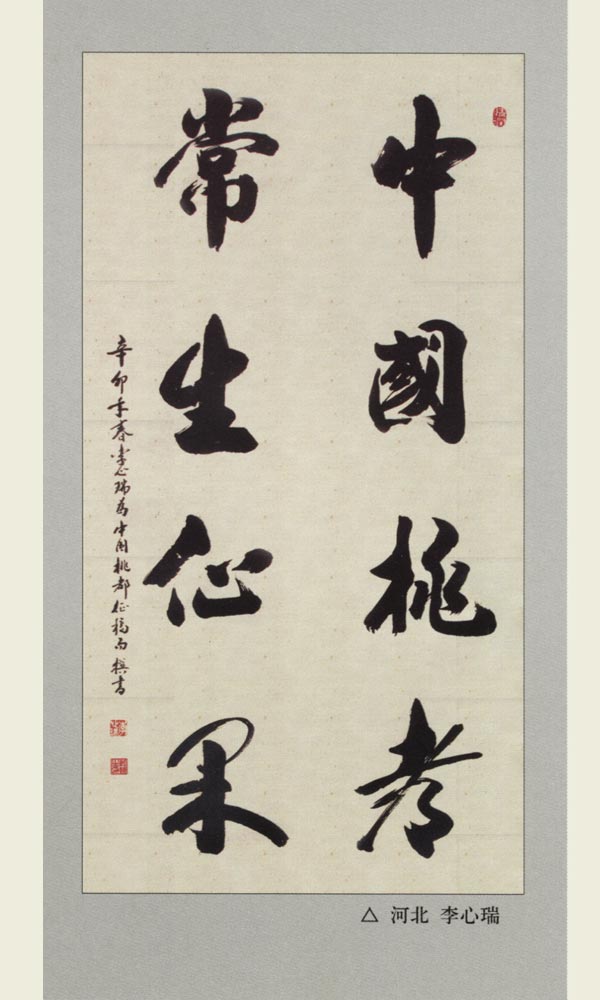 中國桃都
常生仙果
辛卯年春李心瑞為中国桃都征稿而撰书
△ 河北 李心瑞